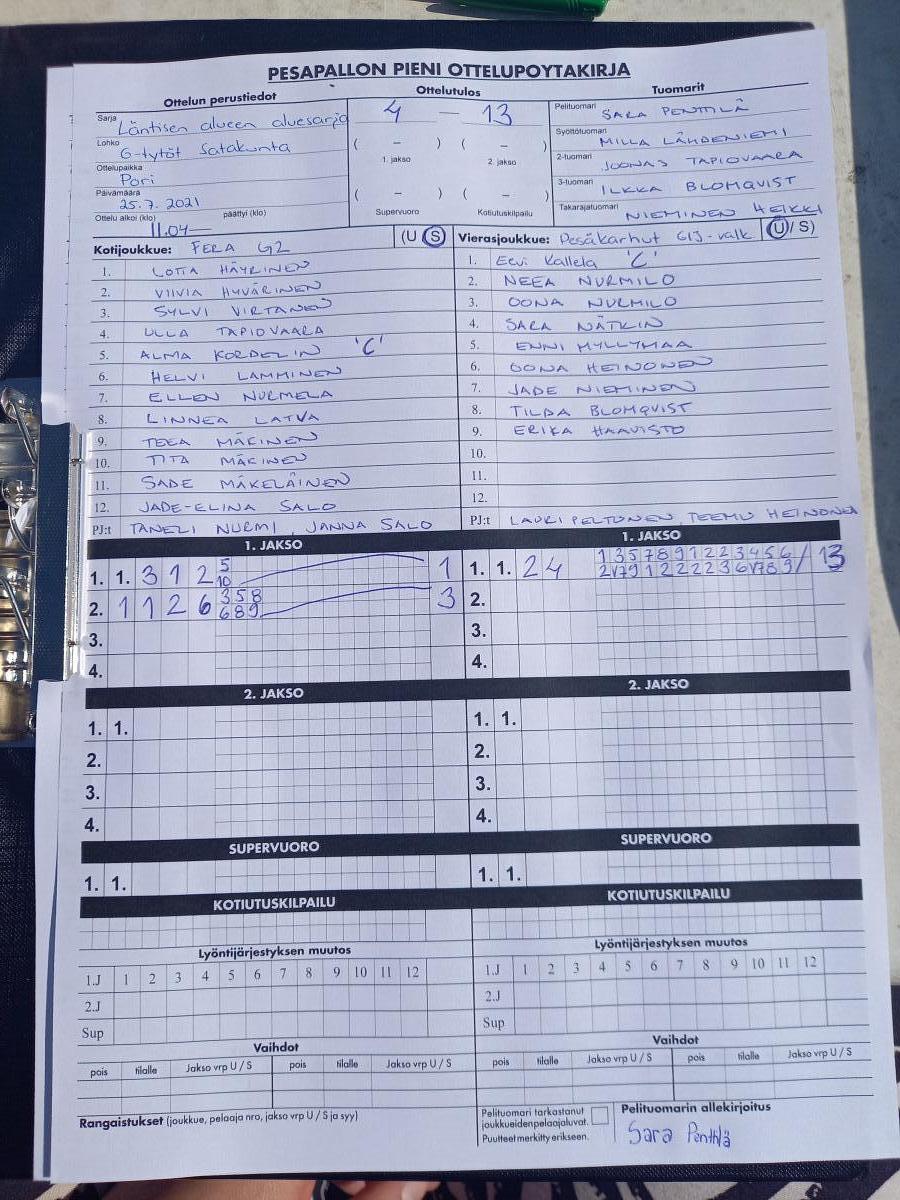 PESAPALLON PIENI OTTELUPOYTAKIRJA
Ottelun perustiedot
Ottelutulos
Tuomarit
Sarja Läntisen alueen aluesarja
Lohko G-tytöt Satakunta
Ottelupaikka Pori
Päivämäärä 25.7.2021
Ottelu alkoi (klo) 11.04— päättyi (klo)
4 — 13
( – ) ( – )
1. jakso 2. jakso
( – ) ( – )
Supervuoro Kotiutuskilpailu
Pelituomari SARA PENTTILÄ
Syöttötuomari MILLA LÄHDENIEMI
2-tuomari JOONAS TAPIOVAARA
3-tuomari ILKKA BLOMQVIST
Takarajatuomari NIEMINEN HEIKKI
Kotijoukkue: FERA G2 (U S)
1. LOTTA HÄYRINEN
2. VIIVIA HYVÄRINEN
3. SYLVI VIRTANEN
4. ULLA TAPIOVAARA
5. ALMA KORDELIN 'C'
6. HELVI LAMMINEN
7. ELLEN NURMELA
8. LINNEA LATVA
9. TEEA MÄKINEN
10. TITA MÄKINEN
11. SADE MÄKELÄINEN
12. JADE-ELINA SALO
PJ:t TANELI NURMI JANNA SALO
Vierasjoukkue: Pesäkarhut GIJ-valk (U/ S)
1. Eevi Kallela 'C'
2. NEEA NURMILO
3. OONA NURMILO
4. SARA NÄTKIN
5. ENNI MYLLYMAA
6. OONA HEINONEN
7. JADE NIEMINEN
8. TILDA BLOMQVIST
9. ERIKA HAAVISTO
10.
11.
12.
PJ:t LAURI PELTONEN TEEMU HEINONEN
1. JAKSO
1. 1. 3 1 2 5 10 1
2. 1 1 2 6 358 689 3
3.
4.
1. JAKSO
1. 1. 2 4 1 3 5 7 8 9 1 2 2 3 4 5 6 / 13
2V79 1 2 2 2 2 3 6V789/
2.
3.
4.
2. JAKSO
1. 1.
2.
3.
4.
2. JAKSO
1. 1.
2.
3.
4.
SUPERVUORO
1. 1.
SUPERVUORO
1. 1.
KOTIUTUSKILPAILU
KOTIUTUSKILPAILU
Lyöntijärjestyksen muutos
1.J 1 2 3 4 5 6 7 8 9 10 11 12
2.J
Sup
Lyöntijärjestyksen muutos
1.J 1 2 3 4 5 6 7 8 9 10 11 12
2.J
Sup
Vaihdot
pois tilalle Jakso vrp U / S pois tilalle Jakso vrp U / S
Vaihdot
pois tilalle Jakso vrp U / S pois tilalle Jakso vrp U / S
Rangaistukset (joukkue, pelaaja nro, jakso vrp U / S ja syy)
Pelituomari tarkastanut
joukkueiden pelaajaluvat.
Puutteet merkitty erikseen.
Pelituomarin allekirjoitus
Sara Penttilä